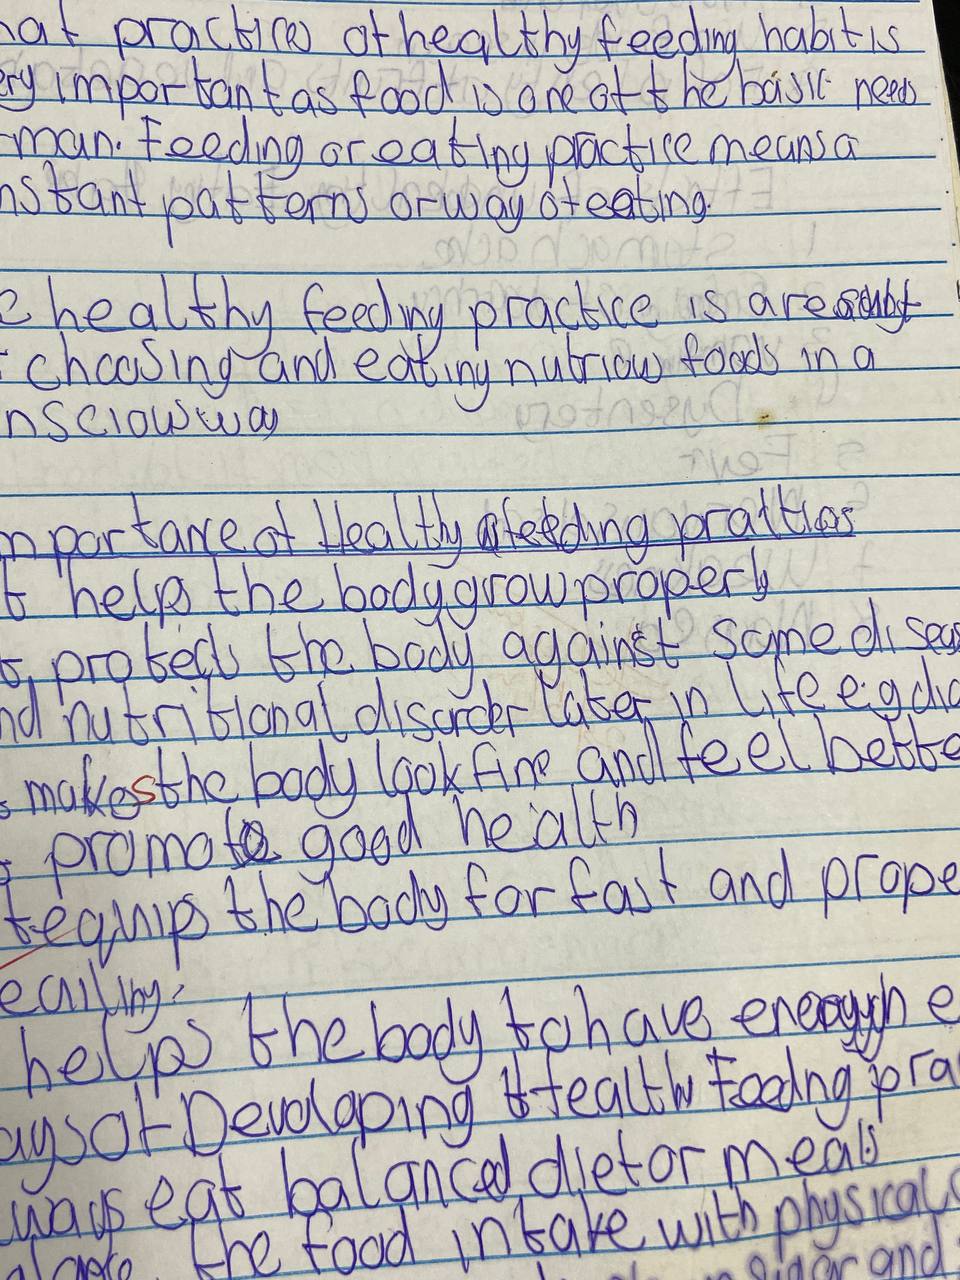 hat practice of healthy feeding habit is
ery important as food is one of the basic needs
man. Feeding or eating practice means a
nstant patterns or way of eating.
healthy feeding practice is a result
choosing and eating nutriow foods in a
nsciowway
mportance of Healthy feeding practices
t helps the body grow properly
t protects the body against some diseas
nd nutritional disorder later in life e.g dia
makes the body look fine and feel bette
promote good health
t equips the body for fast and prope
ealling.
helps the body to have enough e
ays of Developing Healthy Feeding pra
ways eat balanced diet or meals
the food intake with physical
and